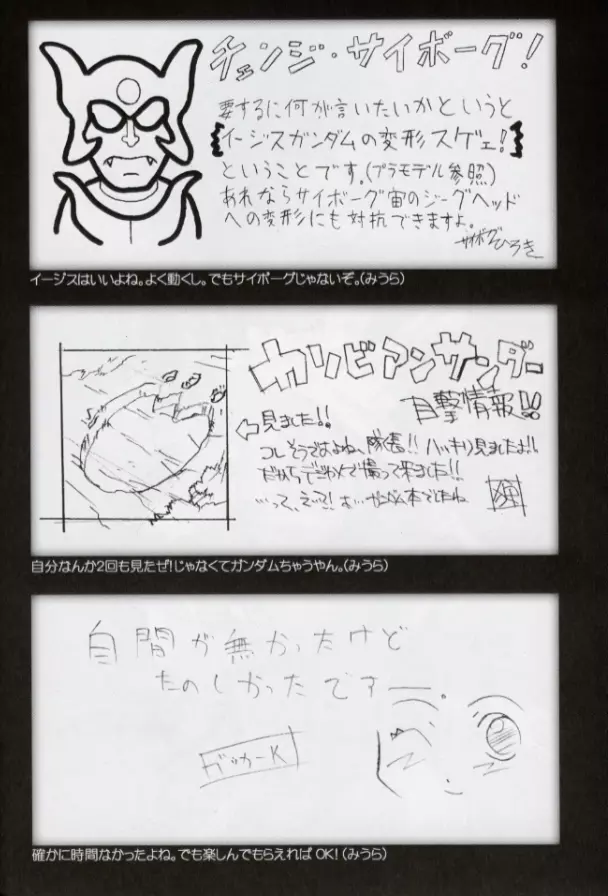 チェンジ・サイボーグ!
要するに何が言いたいかというと
イージスガンダムの変形スゲェ!
ということです。(プラモデル参照)
あれならサイボーグ宙のジーグヘッド
への変形にも対抗できますよ。
サイボーグひろき
イージスはいいよね。よく動くし。でもサイボーグじゃないぞ。(みうら)
カリビアンサンダー
目撃情報!!
見ました!!
コレそうですよね、隊長!! ハッキリ見ましたよ!!
自分なんか2回も見たぜ!じゃなくてガンダムちゃうやん。(みうら)
自間が無かったけど
たのしかったですー。
確かに時間なかったよね。でも楽しんでもらえれば OK!(みうら)